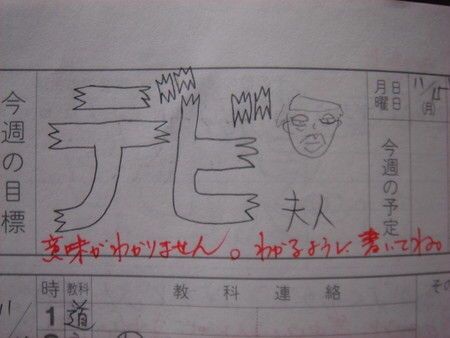 今週の目標
デビ
夫人
月日
曜日
11/15
(月)
今週の予定
意味がわかりません。わかるように書いてね。
11/
時
教科
教科連絡
その
1
道